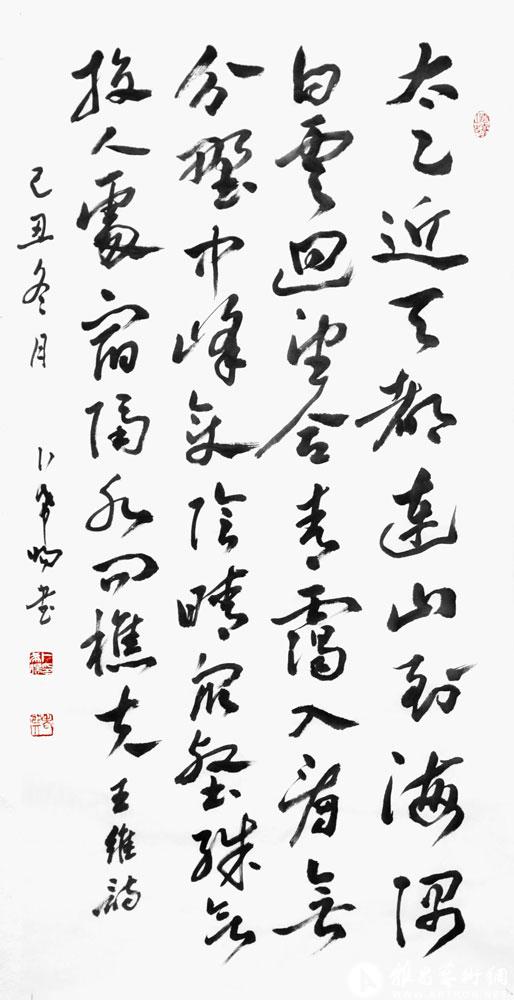 太乙近天都連山到海隅
白雲迴望合青靄入看無
分野中峰變陰晴眾壑殊欲
投人處宿隔水問樵夫 王維詩
己丑冬月 卜希暘書
雅昌藝術網
WWW.ARTRON.NET